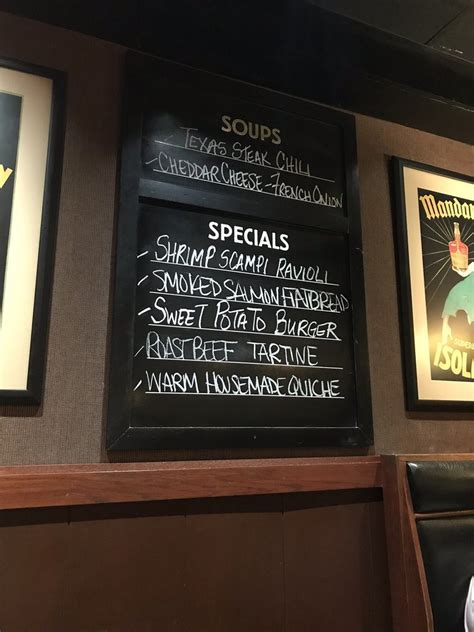 SOUPS
- TEXAS STEAK CHILI
- CHEDDAR CHEESE - FRENCH ONION
SPECIALS
- SHRIMP SCAMPI RAVIOLI
- SMOKED SALMON FLATBREAD
- SWEET POTATO BURGER
- ROAST BEEF TARTINE
- WARM HOUSEMADE QUICHE
Mandar
ISOL